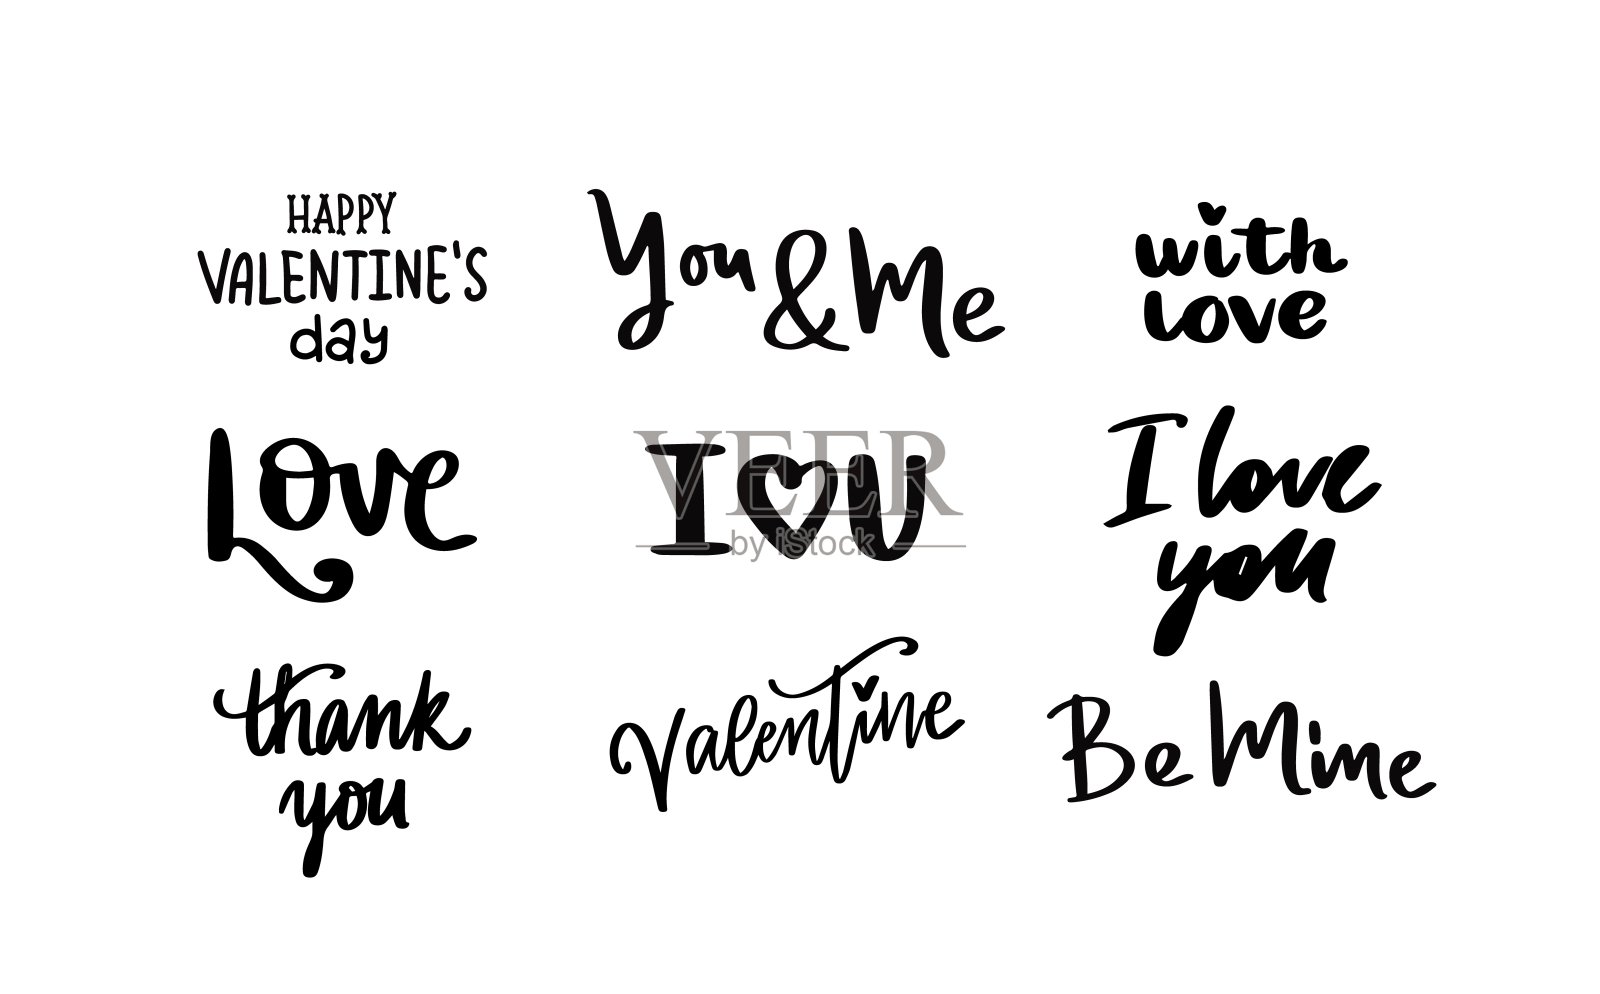 HAPPY
VALENTINE'S
day
You & Me
with
love
Love
I ♡ U
VEER
by iStock
I love
you
thank
you
Valentine
Be Mine